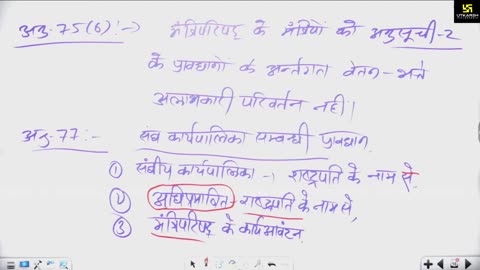 UTKARSH
अनु. 75(6) :-> मंत्रिपरिषद् के मंत्रियों को अनुसूची-2
के प्रावधानों के अर्न्तगत वेतन-भत्ते
अलाभकारी परिवर्तन नहीं।
अनु-77:- संघ कार्यपालिका सम्बन्धी प्रावधान
① संघीय कार्यपालिका -> राष्ट्रपति के नाम से
② अधिप्रमाणित - राष्ट्रपति के नाम से,
③ मंत्रिपरिषद् के कार्य आवंटन